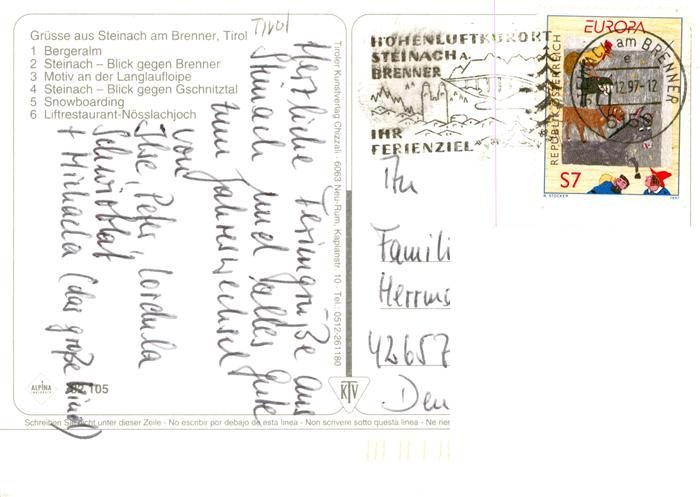 Grüsse aus Steinach am Brenner, Tirol
1 Bergeralm
2 Steinach – Blick gegen Brenner
3 Motiv an der Langlaufloipe
4 Steinach – Blick gegen Gschnitztal
5 Snowboarding
6 Liftrestaurant-Nösslachjoch
Tirol
Herzliche Feriengrüße aus
Steinach und alles Gute
zum Jahreswechsel
von
Ilse, Peter, Cordula
+ Michaela (das große
ALPINA
105
Tiroler Kunstverlag Chizzali · 6063 Neu-Rum, Kaplanstr. 10 · Tel. 0512-261180
KTV
HÖHENLUFTKURORT
STEINACH A.
BRENNER
IHR
FERIENZIEL
am BRENNER
12.97-12
EUROPA
REPUBLIK ÖSTERREICH
S7
H. STOCKER
1997
An
Famili
Herrma
42657
Deu
Schreiben Sie nicht unter dieser Zeile - No escribir por debajo de esta linea - Non scrivere sotto questa linea - Ne rien